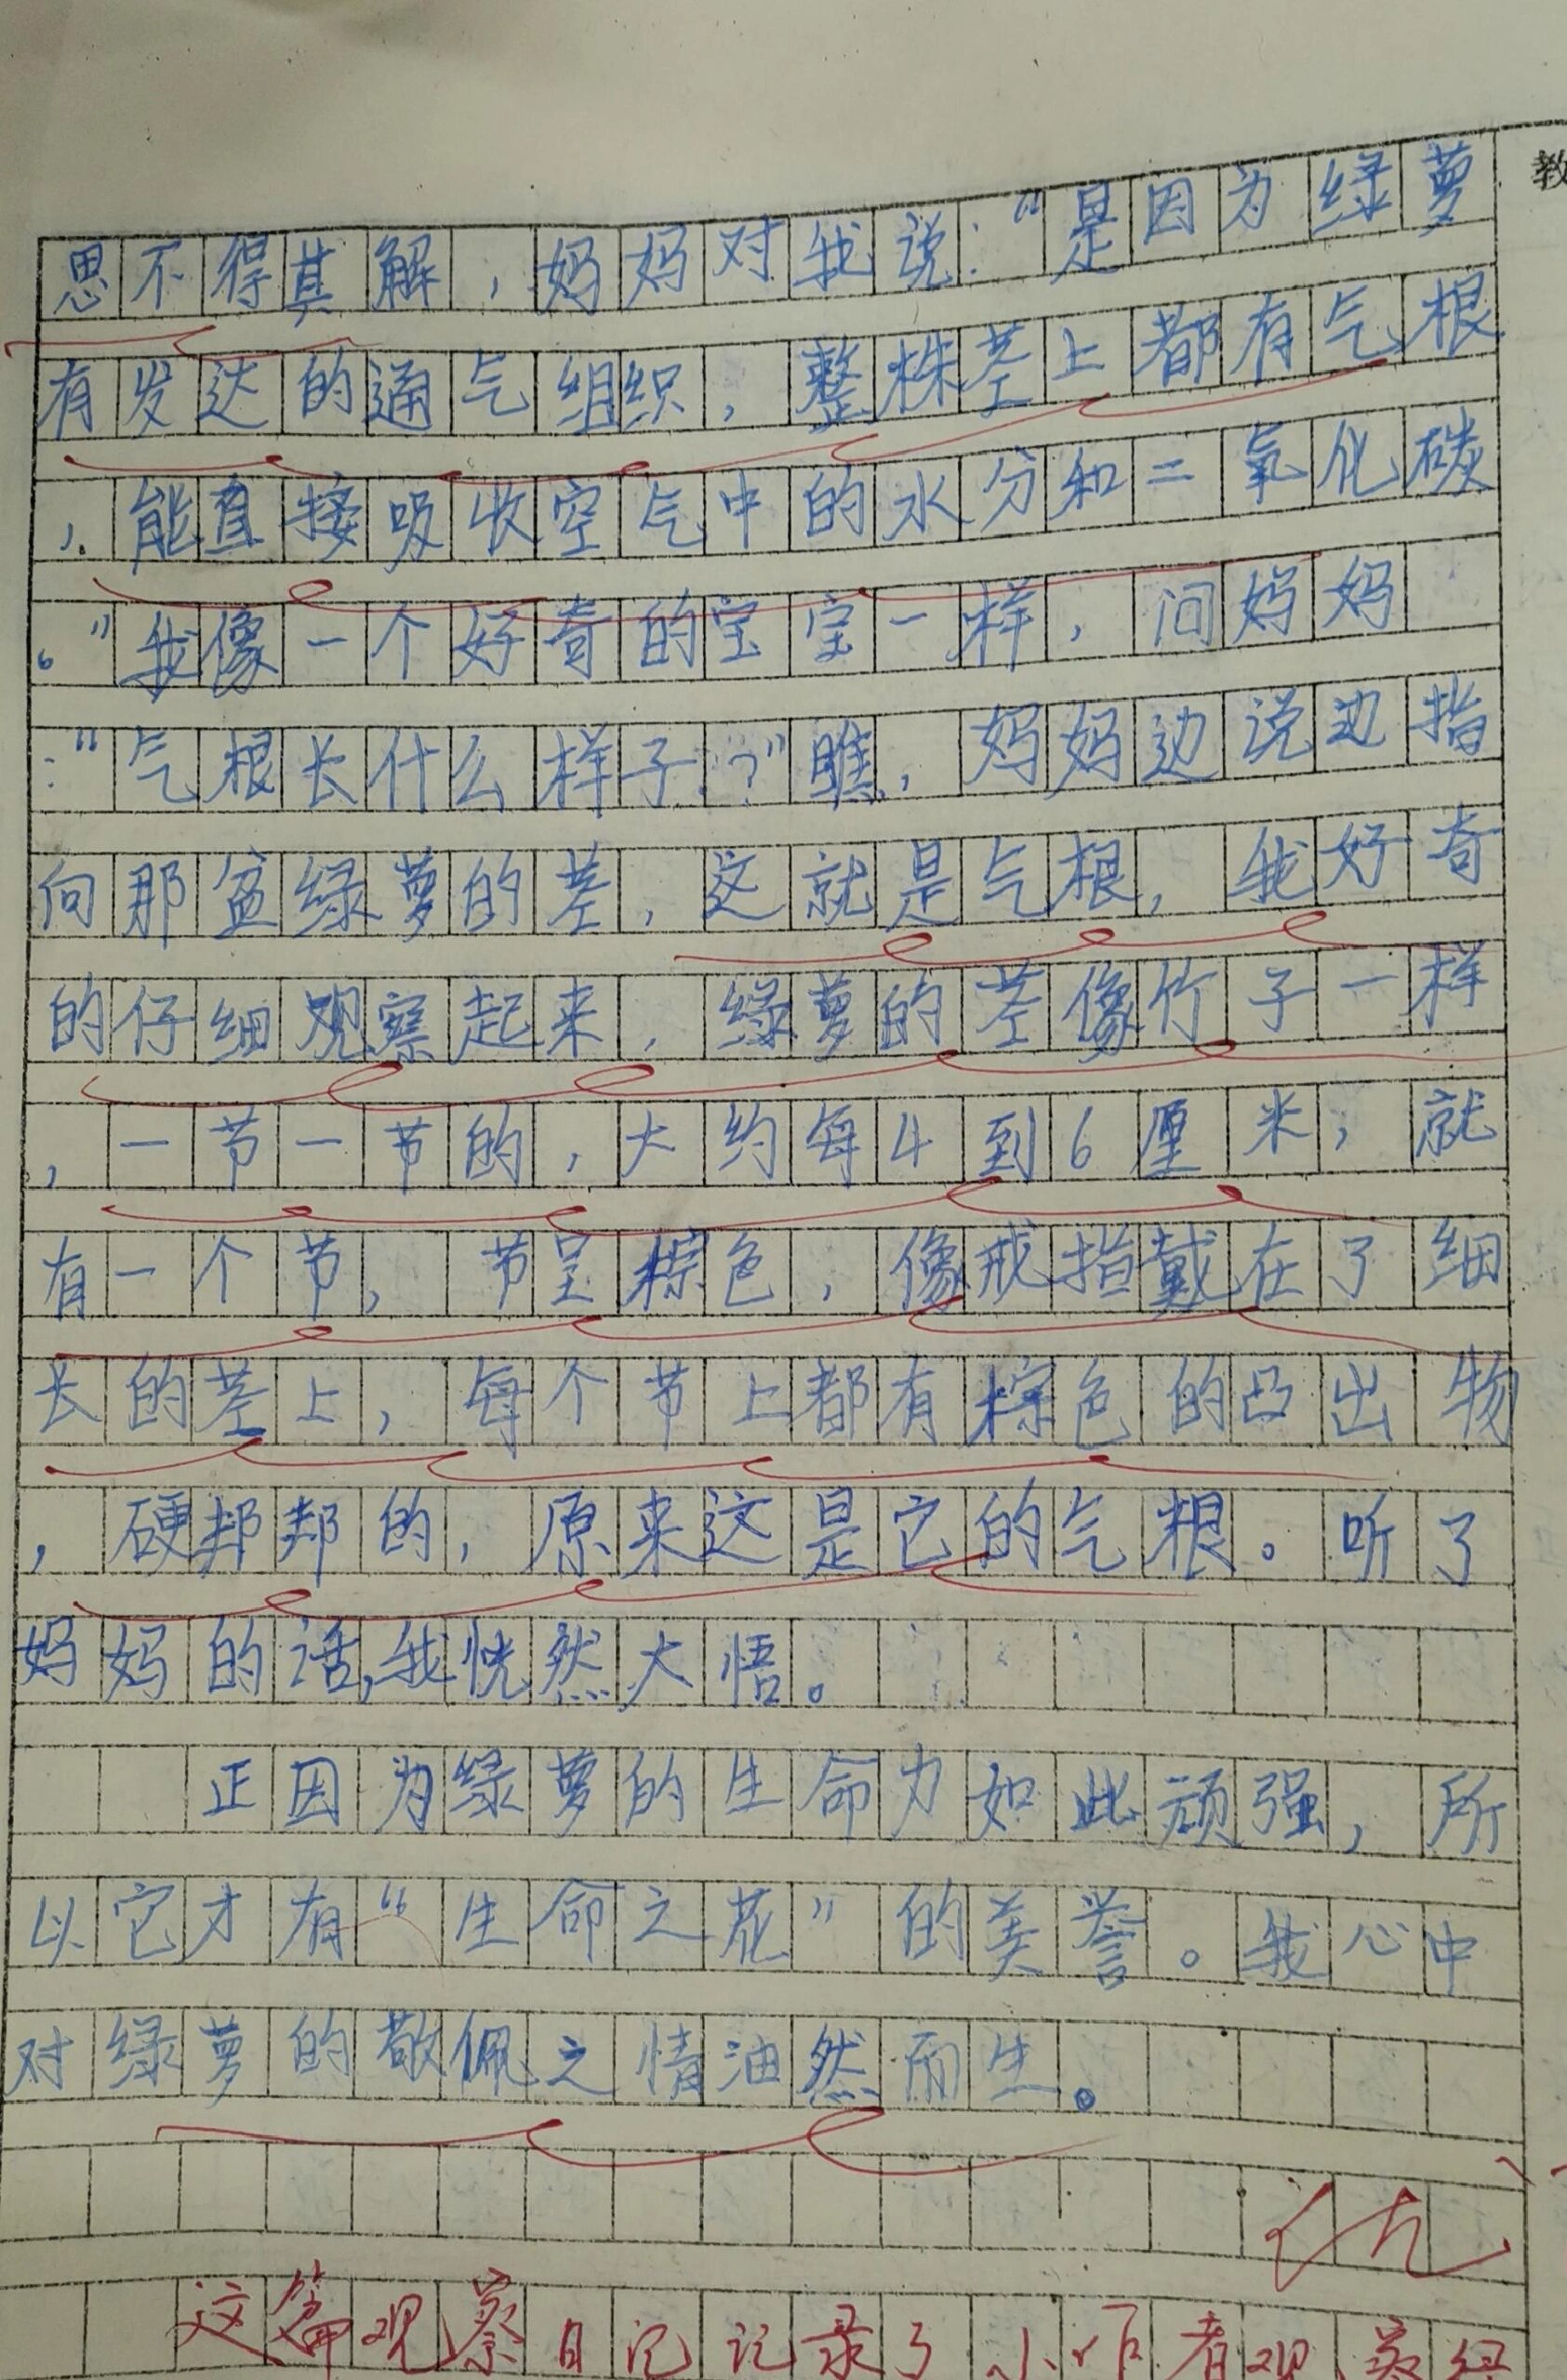 教
思不得其解，妈妈对我说：“是因为绿萝
有发达的通气组织，整株茎上都有气根
，能直接吸收空气中的水分和二氧化碳
。”我像一个好奇的宝宝一样，问妈妈
：“气根长什么样子？”瞧，妈妈边说边指
向那盆绿萝的茎，这就是气根，我好奇
的仔细观察起来，绿萝的茎像竹子一样
，一节一节的，大约每4到6厘米；就
有一个节，节呈棕色，像戒指戴在了细
长的茎上，每个节上都有棕色的凸出物
，硬邦邦的，原来这是它的气根。听了
妈妈的话，我恍然大悟。
正因为绿萝的生命力如此顽强，所
以它才有“生命之花”的美誉。我心中
对绿萝的敬佩之情油然而生。
优
这篇观察日记记录了小作者观察绿